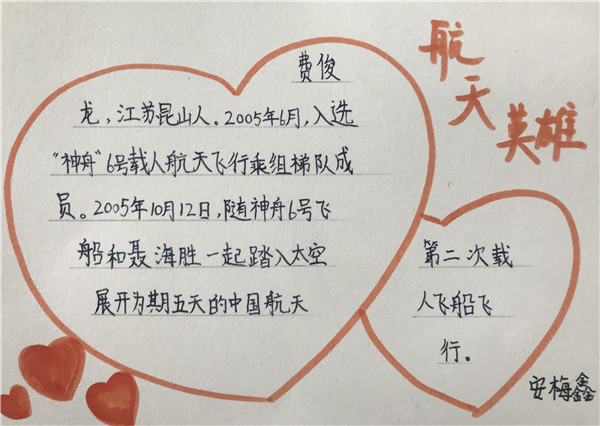 航天英雄
费俊
龙，江苏昆山人。2005年6月，入选
"神舟"6号载人航天飞行乘组梯队成
员。2005年10月12日，随神舟6号飞
船和聂海胜一起踏入太空
展开为期五天的中国航天
第二次载
人飞船飞
行。
安梅鑫